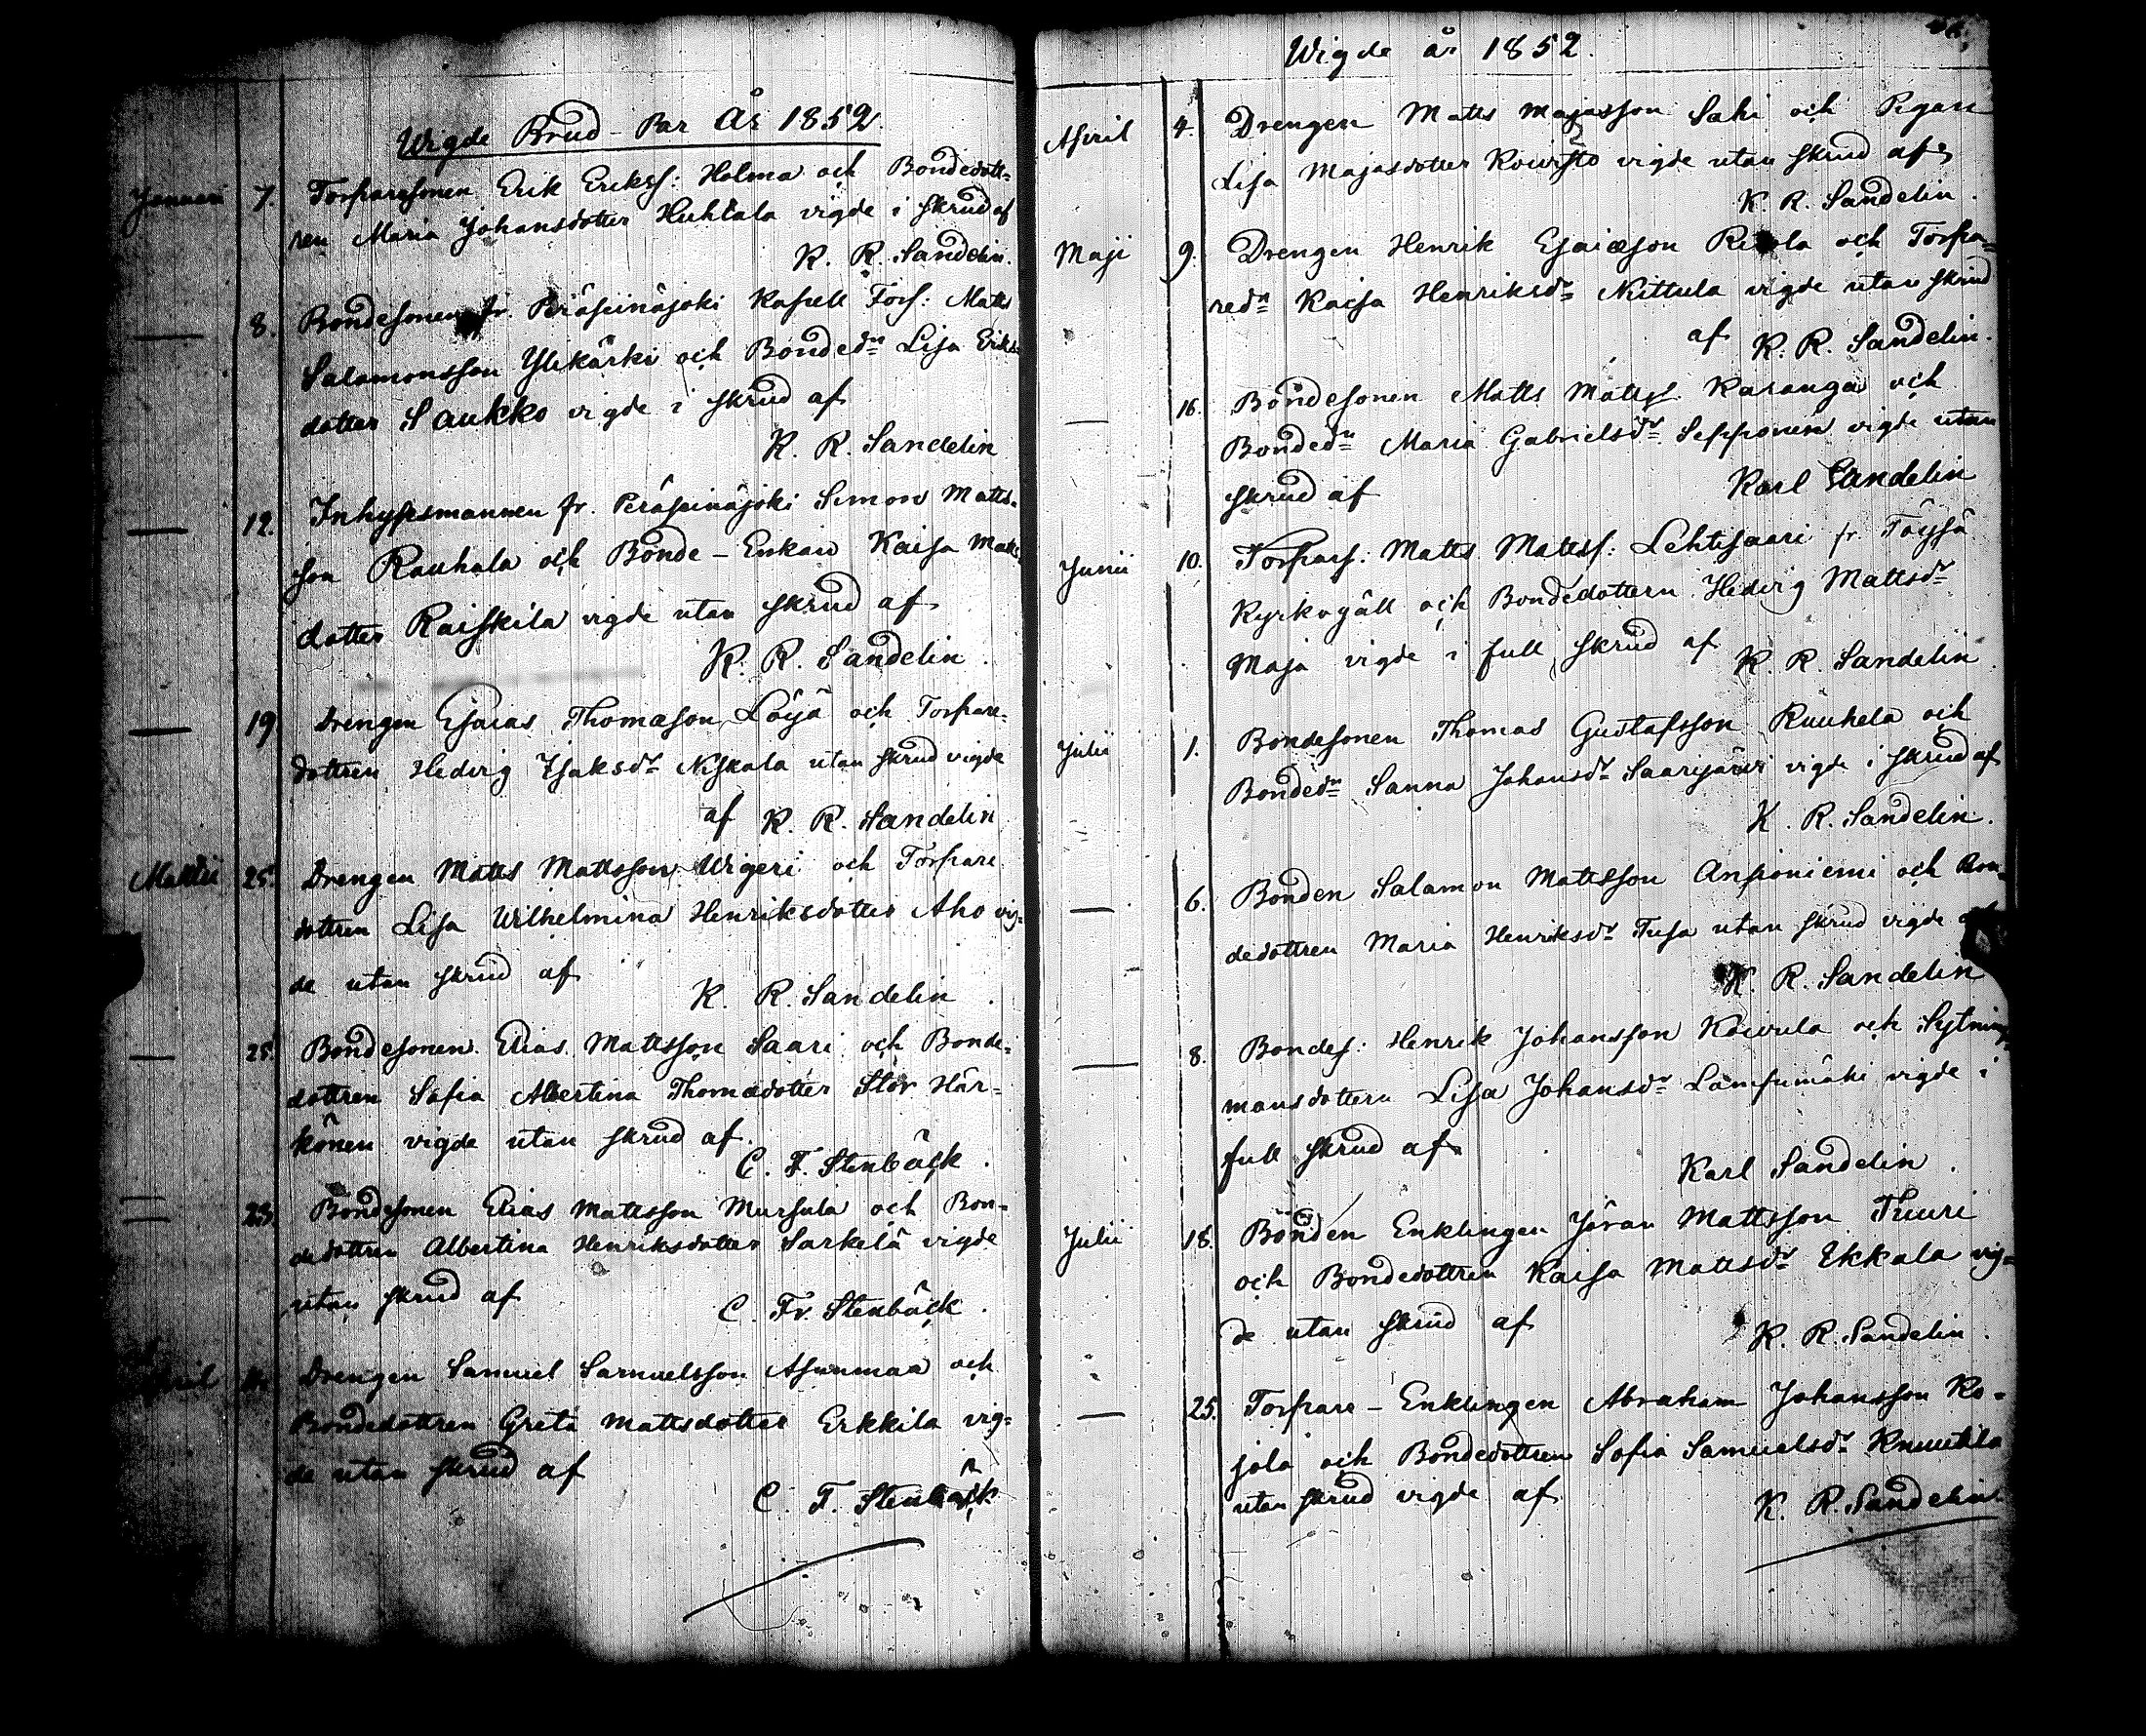 Wigde Brud-Par År 1852.
Januari 7. Torparesonen Erik Erikss: Holma och Bondedott-
ren Maria Johansdotter Huhtala vigde i skrud af
K. R. Sandelin.
— 8. Bondesonen fr Peräseinäjoki Kapell Förs: Matts
Salamonsson Ylikärki och Bondedn Lisa Eriks
dotter Saukko vigde i skrud af
K. R. Sandelin
— 12. Inhysesmannen fr. Peräseinäjoki Simon Matts-
son Rauhala och Bonde-Enkan Kaisa Matts
dotter Raiskila vigde utan skrud af
K. R. Sandelin.
— 19 Drengen Esaias Thomason Löijä och Torpare-
dottren Hedvig Isaksdr Niskala utan skrud vigde
af K. R. Sandelin
25. Drengen Matts Mattsson Wigeri och Torpare
dottren Lisa Wilhelmina Henriksdotter Aho vig-
de utan skrud af
K. R. Sandelin.
— 25. Bondesonen Elias Mattsson Saari och Bonde-
dottren Sofia Albertina Thomædotter Stor Här-
könen vigde utan skrud af
C. F. Stenbäck.
— Bondesonen Elias Mattsson Mursula och Bon-
dedottren Albertina Henriksdotter Sarkelä vigde
utan skrud af
C. Fr. Stenbäck.
April Drengen Samuel Samuelsson Asunmaa och
Bondedottren Greta Mattsdotter Erkkila vig-
de utan skrud af
C. F. Stenbäck
Wigde år 1852.
April 4. Drengen Matts Majasson Sahi och Pigan
Lisa Majasdotter Koivisto vigde utan skrud af
K. R. Sandelin.
Maji 9. Drengen Henrik Esaiæson och Torpa-
redn Kaisa Henriksdr Nittula vigde utan skrud
af K. R. Sandelin.
— 16. Bondesonen Matts Mattss. Karanga och
Bondedn Maria Gabrielsdr Sepponen vigde utan
skrud af Karl Sandelin
Junii 10. Torpars: Matts Mattss: Lehtisaari fr Töysä
Kyrkogäll och Bondedottern Hedvig Mattsdr
Maja vigde i full skrud af K. R. Sandelin.
Julii 1. Bondesonen Thomas Gustafsson Ruuhela och
Bondedn Sanna Johansdr Saarijärvi vigde i skrud af
K. R. Sandelin.
— 6. Bonden Salamon Mattsson Anponiemi och Bon-
dedottren Maria Henriksdr Tusa utan skrud vigde af
K. R. Sandelin
— 8. Bondes: Henrik Johansson Koivula och Sytnings-
mansdottern Lisa Johansdr Lamsumäki vigde i
full skrud af
Karl Sandelin.
Julii 18. Bonden Enklingen Jöran Mattsson Tuuri
och Bondedottren Kaisa Mattsdr Ekkala vig-
de utan skrud af K. R. Sandelin.
— 25. Torpare-Enklingen Abraham Johansson Ko-
jola och Bondedottren Sofia Samuelsdr Knuutila
utan skrud vigde af K. R. Sandelin.